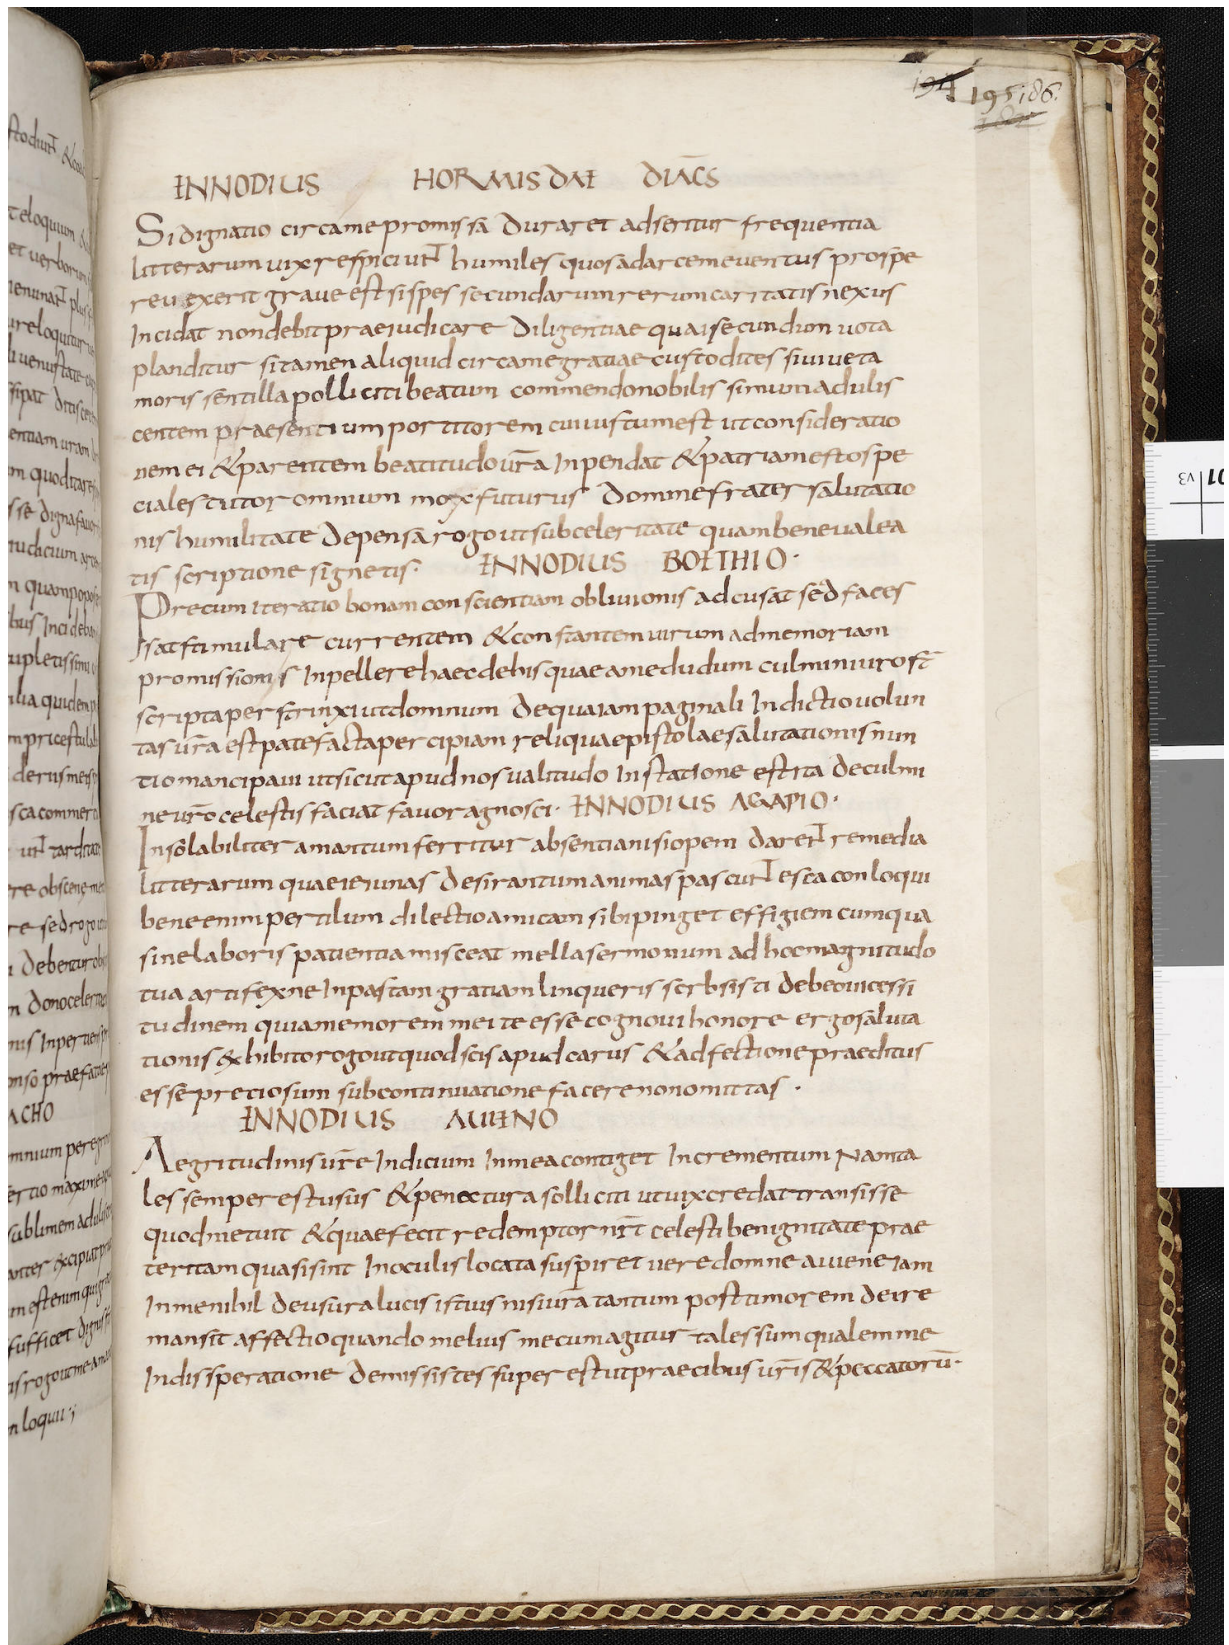 194 195 186.
182
ENNODIUS HORMISDAE DIAC̄S
Si dignatio circa me promissa duraret adseritur frequentia
litterarum vix respiciunt humiles quos ad arcem eventus prospe
rev exerit grave est si spes secundarum rerum caritatis nexus
Incidat non debit praeiudicare diligentiae quai secundum vota
planditur si tamen aliquid circa me gratiae custodites si viveta
moris sentilla polliciti beatum commendo nobilis simum adulis
centem praesentium portitorem cui iustum est ut consideratio
nem ei & parentem beatitudo ur̄a Inpendat & patriam esto spe
ciales tutor omnium mox futurus domine frater salutatio
nis humilitate depensa rogo ut sub celeritate quam bene valea
tis scriptione signetis· ENNODIUS BOETHIO·
Precum iteratio bonam conscientiam oblivionis adcusat sed faces
sat stimulare currentem & constantem virum ad memoriam
promissionis Inpellere haec de his quae a me dudum culmini vr̄o st̄
scripta perstrinxi ut domnum de qua iam paginali Indictio volun
tas ur̄a est patefacta percipiam reliqua epistolae salutationis nun
tio mancipavi ut sicut apud nos valitudo In statione est ita de culmi
ne vr̄o celestis faciat favor agnosci· ENNODIUS AGAPIO·
Insolabiliter amantum ferritur absentia nisi opem darent remedia
litterarum quae ieiunas desirantum animas pascunt esca conloqui
bene enim per tilum dilectio amicam sibi pinget effigiem cum qua
sine laboris patientia misceat mella sermonum ad hoc magnitudo
tua artifex ne Inpastam gratiam linqueris scrbsisti debeo vicessi
tudinem quia memorem mei te esse cognovi honore ergo saluta
tionis exhibito rogo ut quod scis apud carus & adfectione praeditus
esse pretiosum sub continuatione facere non omittas ·
ENNODIUS AVIENO
Aegritudinis ur̄e Indicium In mea contiget Incrementum Nam ta
les semper est usus & penectura solliciti ut vix credat transisse
quod metuit & quae fecit redemptor nr̄i celesti benignitate prae
teritam quasi sint In oculis locata suspiret vere domne aviene iam
In me nihil de usura lucis istius nisi ur̄a tantum post timorem de ire
mansit affectio quando melius mecum agitur tales sum qualem me
In dissperatione demissistes super est ut praecibus ur̄is & peccatorū·